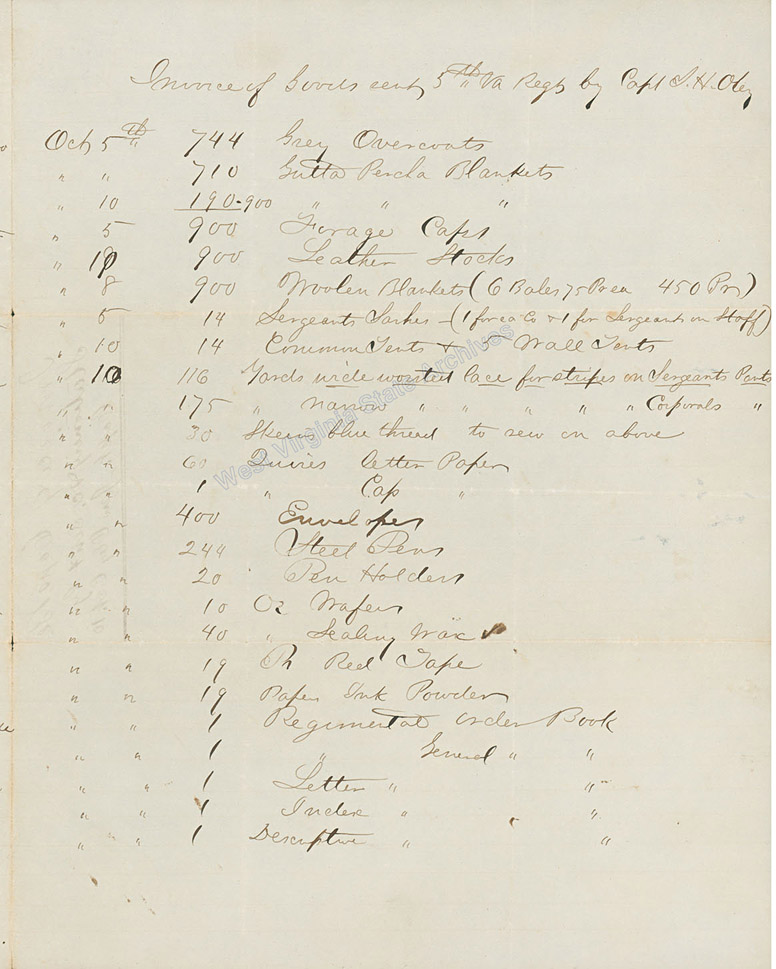 Invoice of Goods sent 5th Va Regt by Capt J. H. Oley
Oct 5th 744 Grey Overcoats
" " 710 Gutta Percha Blankets
" 10 190-900 " " "
" 5 900 Forage Caps
" 10 900 Leather Stocks
" 8 900 Woolen Blankets (6 Bales 75 Pr ea 450 Prs)
" 5 14 Sergeants Sashes - (1 for ea Co & 1 for Sergeants on Staff)
" 10 14 Common Tents & 5 Wall Tents
" 10 116 Yards wide worsted lace for stripes on Sergeants Pants
" " 175 " narrow " " " " " Corporals "
" " 30 Skeins blue thread to sew on above
" " 60 Quires letter Paper
" " 1 " Cap "
" " 400 Envelopes
" " 244 Steel Pens
" " 20 Pen Holders
" " 10 Oz Wafers
" " 40 " Sealing Wax
" " 19 Ps Red Tape
" " 19 Paper Ink Powder
" " 1 Regimental order Book
" " 1 " General " "
" " 1 Letter " "
" " 1 Index " "
" " 1 Descriptive " "
West Virginia State Archives